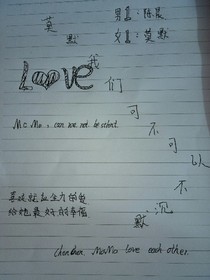 莫
默
男主:陈晨
女主:莫默
Love
我们可不可以不沉默
Mo Mo, can we not be silent.
喜欢就拟全力的爱
给她最好的幸福
ChenChen, MoMo love each other.